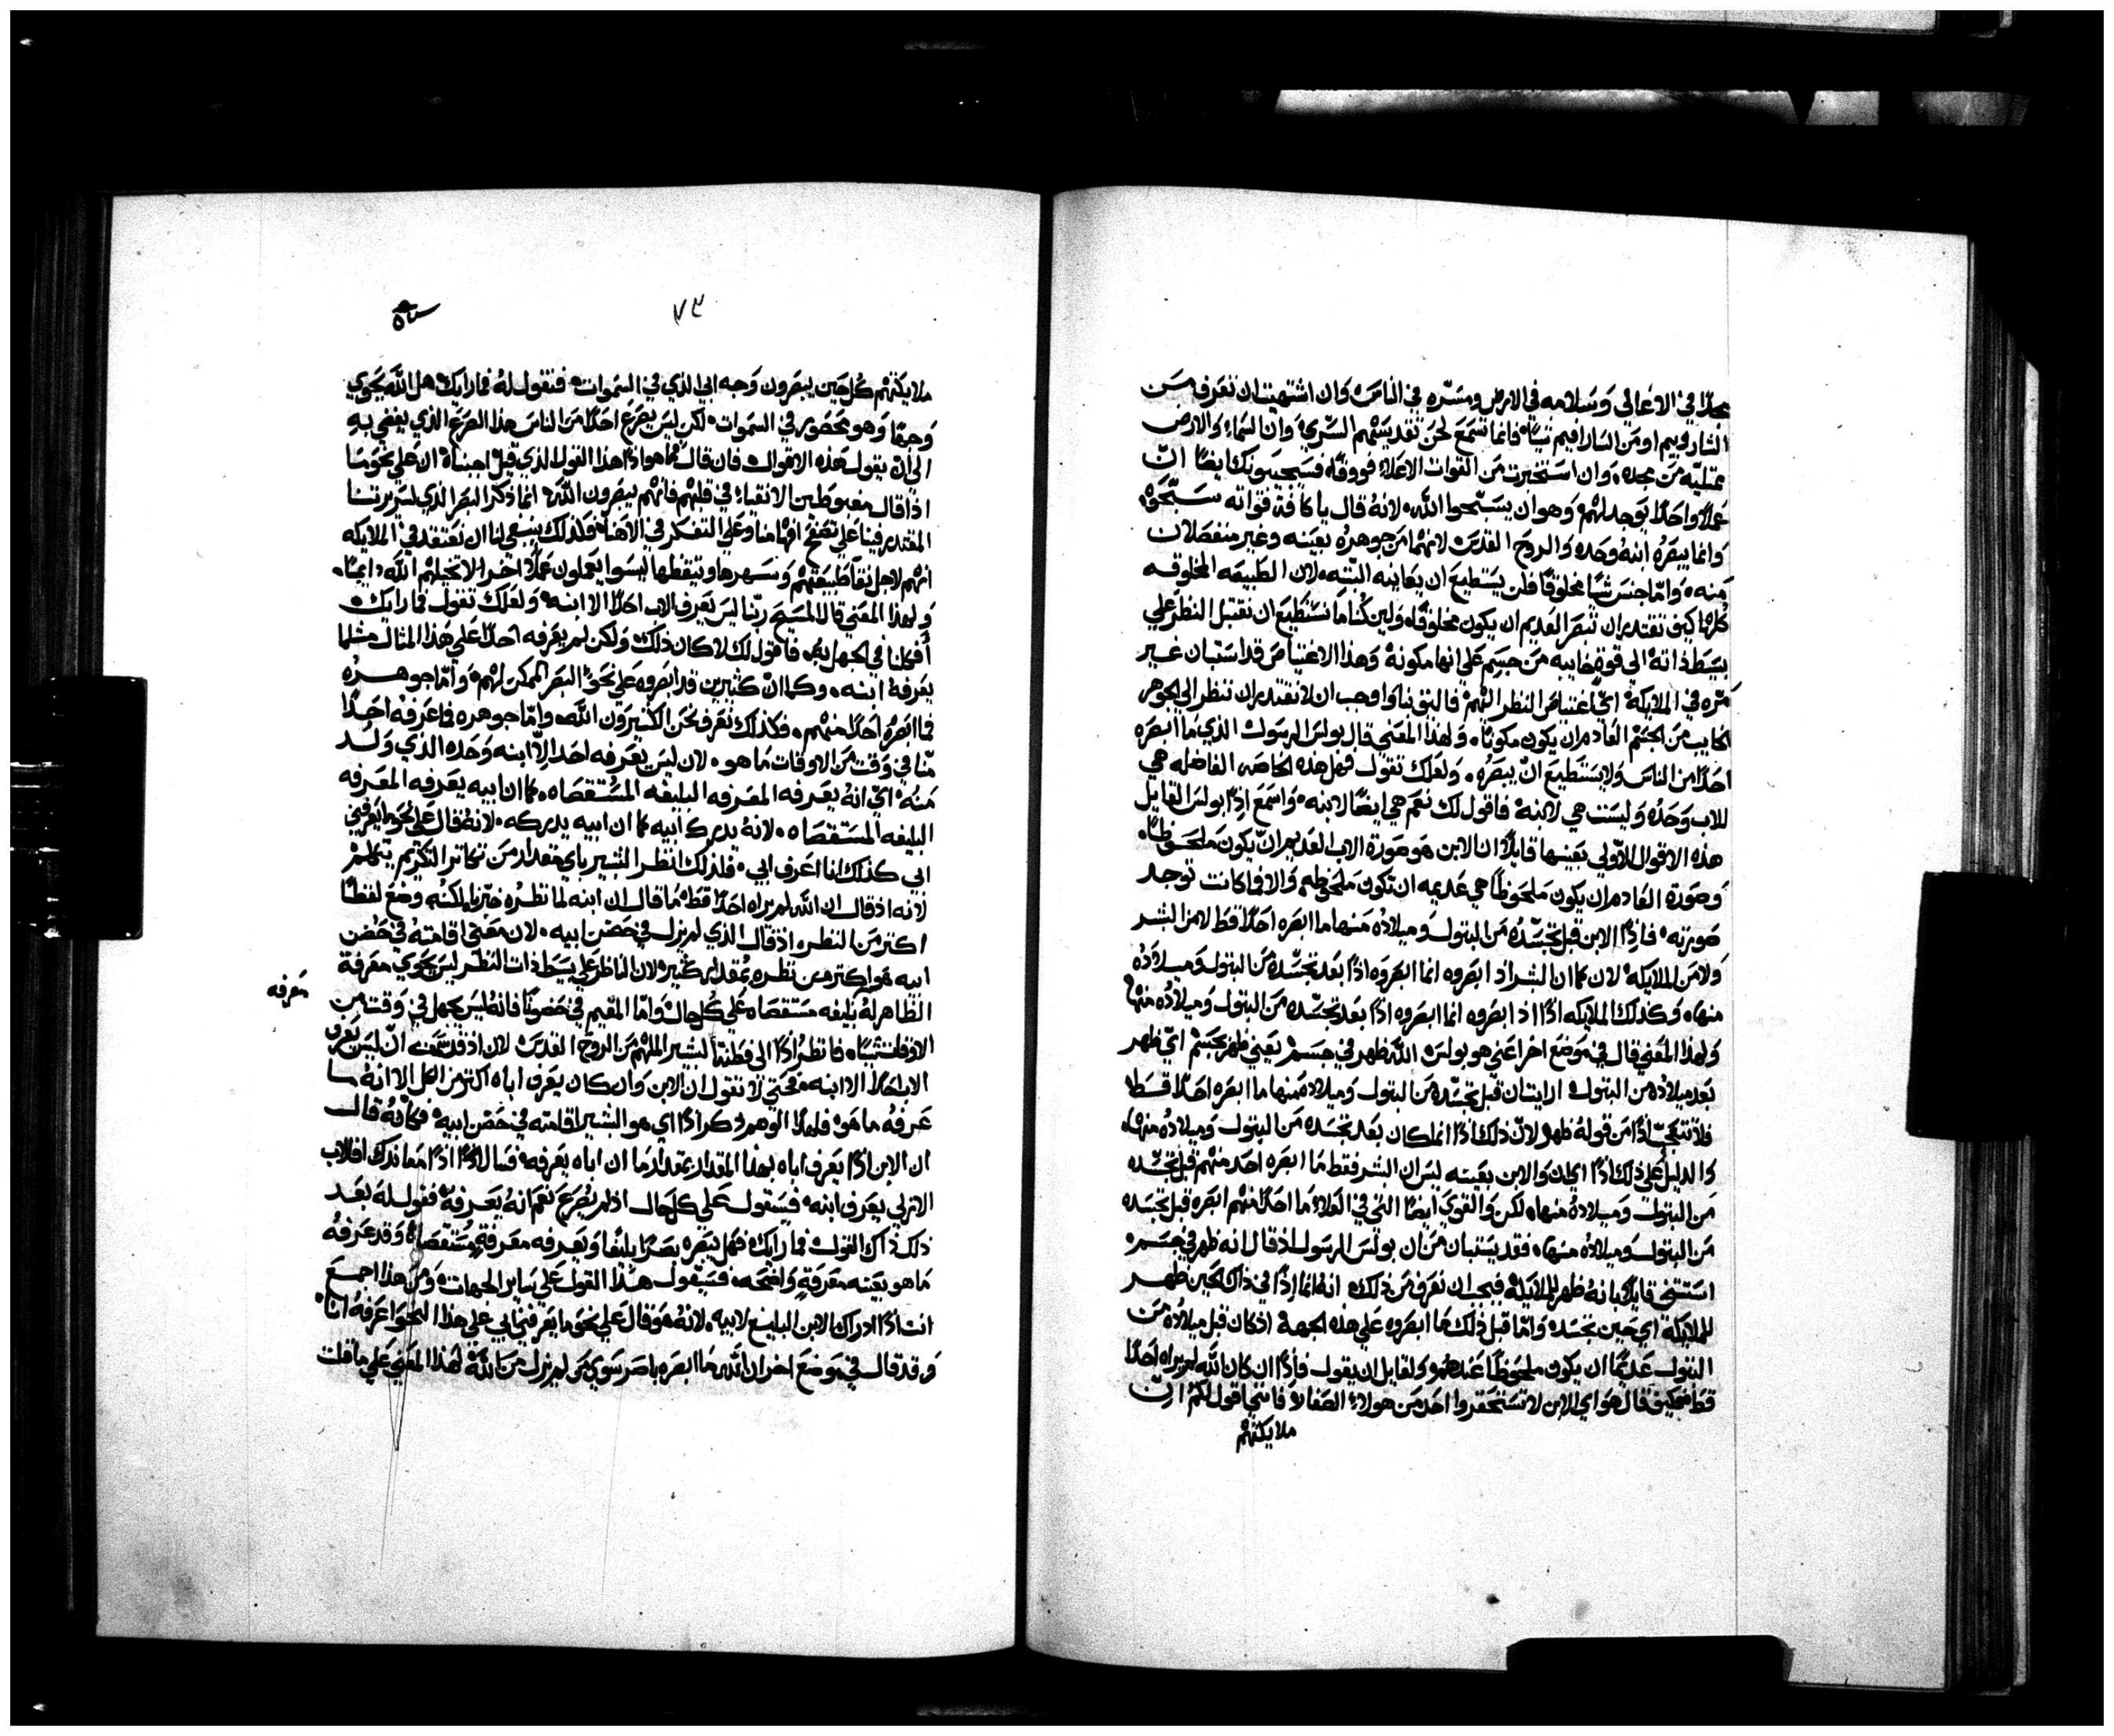 مجدًا في الاعالي وسلامه في الارض ومسّره في الناس وان اشتهيت ان تعرف من
الشاروبيم او من السارافيم شيًا فانما تسمع لحن تقديسهم السّري وان السماء والارض
ممتليه من مجده وان استخبرت من القوات الاعلاء فووقًا فسيجيبونك ايضًا انّ
عملًا واحدًا يوجد لهم وهو ان يسبّحوا الله لانهُ قال يا كافة قواته سبّحوهُ
وانما يبصرهُ ابنهُ وحده والروح القدس لانهما من جوهرهُ بعينه وغير منفصلان
منه وامّا جنس شيًا مخلوقًا فلن يستطيع ان يعاينه البتّه لان الطبيعه المخلوقه
كلها كيف تقتدر ان تبصر العديم ان يكون مخلوقًا ولين كُنا ما نستطيع ان نقتبل النظر علي
بسيط ذاتهُ الى قوة خايبه من جسم علي انها مكونة وهذا الاعتياص قد استبان غير
مرّه في الملايكة اي اعتياص النظر اليهم فاليق بنا واوجب ان لا نقتدر ان ننظر الي الجوهر
الخايب من الجسم العادم ان يكون مكونًا ولهذا المعني قال بولس الرسول الذي ما ابصره
احدًا من الناس ولا يستطيع انّ يبصرهُ ولعلك تقول فهل هذه الخاصه الفاضله هي
للاب وحدهُ وليست هي لابنهُ فاقول لك نعم هي ايضًا لابنه واسمع اذًا بولس القايل
هذه الاقوال الاولي بعينها قايلًا ان الابن هو صورة الاب العديم ان يكون ملحوظًا
وصورة العادم ان يكون ملحوظًا هي عديمه ان تكون ملحوظه والا فما كانت توجد
صورته فاذًا الابن قبل تجسّدهُ من البتول وميلادهُ منها ما ابصره احدًا قط لا من البشر
ولا من الملايكه لان كما ان البشر اذ ابصروه انما ابصروه اذًا بعد تجسّدهُ من البتول وميلادهُ
منها وكذلك الملايكه اذًا اذ ابصروه انما ابصروه اذًا بعد تجسّده من البتول وميلادُه منها
ولهذا المعني قال في موضع اخر اعني هو بولس الله ظهر في جسم يعني ظهر بجسم ايّ ظهر
بعد ميلادُه من البتول ارايت ان قبل تجسّده من البتول وميلاده منها ما ابصره احدًا قط
فلا تتعجبّ اذًا من قولهُ ظهر لانّ ذلك اذًا انما كان بعد تجسّده من البتول وميلادُه منها
والدليل علي ذلك اذًا اي ان والابن بعينه ليس ان البشر فقط ما ابصره احد منهم قبل تجسّده
من البتول وميلادهُ منها لكن والقوي ايضًا التي في العلاء ما احدًا منهم ابصره قبل تجسّده
من البتول وميلادُه منها فقد يستبان من ان بولس الرسول اذ قال انه ظهر في جسم
استتني قايلًا بانهُ ظهر للملايكه فيجب ان نعرف من ذلك انهُ انما اذًا في ذاك الحين ظهر
للملايكة اي حين تجسّده وامّا قبل ذلك فما ابصروه علي هذه الجهة اذ كان قبل ميلادُه من
البتول عديمًا ان يكون ملحوظًا عندهم ولقايل ان يقول فاذًا ان كان الله لم يراه احدًا
قط فكيف قال هو اي الابن لا تستحقروا احد من هولاء الصغار فانني اقول لكم انّ
ملايكتهم
٧٣
ملايكتهم كُل حين يبصرون وجه ابي الذي في السموات فنقول لهُ فما رايك هل الله يحوي
وجهًا وهو محصور في السموات لكن ليس يصرع احدًا من الناس هذا الصرع الذي يفضي به
الي ان يقول هذه الاقوال فان قال فما هو اذًا هذا القول الذي قيل اجبناه ان علي نحو ما
اذا قال مغبوطين الانقياء في قلبهم فانهم يبصرون الله انما ذكر البصر الذي لسريرتنا
المقتدر فينا علي تصفح افهامنا وعلي التفكر في الاهنا فلذلك ينبغي لنا ان نعتقد في الملايكه
انهم لاجل نقا طبيعتهم وسهرها وتيقظها ليسوا يعملون عملًا اخر الا تخيلهم الله دايمًا
ولهذا المعني قال المسيح ربّنا ليس يعرف الاب احدًا الا ابنه ولعلك تقول فما رايك
أفكلنا في الجهل به فاقول لك لا كان ذلك ولكن لم يعرفه احدًا علي هذا المثال مثلما
يعرفهُ ابنه وكما انّ كثيرين قد ابصروه علي نحو البصر الممكن لهم وامّا جوهرهُ
فما ابصرهُ احدًا منهم فكذلك نعرف نحن الكثيرون الله وامّا جوهره فما عرفهُ احدًا
منّا في وقت من الاوقات ما هو لان ليس يعرفه احد الاّ ابنه وحده الذي ولد
منهُ اي انهُ يعرفه المعرفه البليغه المستقصاه كما ان ابيه يعرفه المعرفه
البليغه المستقصاه لانهُ يدرك أبيه كما ان ابيه يدركه لانهُ قال علي نحو ما يعرفني
ابي كذلك انا اعرف ابي فلذلك انظر البشير باي مقدار من تكاثر التكريم يتكلم
لانه اذ قال ان الله لم يراه احدًا قط ما قال ان ابنه لما نظرُه خبّرنا لكنُه وضع لفظًا
اكتر من النظره اذ قال الذي لم يزل في حضن ابيه لان معني اقامتهُ في حضن
ابيه هو اكتر من نظره بمقدار كثير لان الناظر علي بسيط ذات النظر ليس يحوي معرفة
الظاهر لهُ بليغه مستقصاه علي كُل حال وامّا المقيم في حضن فانهُ ليس يجهل في وقت من
معرفه
الاوقات شيًا فانظرُ اذًا الى فطنة البشير الملهم من الروح القدس لان اذ قد سمع انّ ليس يعرف
الاب احدًا الا ابنه فحتي لا تقول ان الابن وان كان يعرف اباه اكتر من الكل الا انهُ ما
عرفهُ ما هو فلهذا الوهم ذكر اذًا اي هو البشير اقامته في حضن ابيه فكأنهُ قال
ان الابن اذًا يعرف اباه بهذا المقدار بمقدار ما ان اباه يعرفه فسال اذًا من معاندك افللاب
الازلي يعرف ابنه فسيقول علي كل حال اذ لم يصرع نعم انهُ يعرفهُ فقول لهُ بعد
ذلك ذاك القول فما رايك فهل يبصره بصرًا بليغًا ويعرفه معرفةٍ مستقصاةٍ وقد عرفهُ
ما هو بعينه معرفةٍ واضحه فسيقول هذا القول علي ساير الجهات ومن هذا اجمع
انت اذًا ادراك الابن البليغ لابيه لانهُ هو قال علي نحو ما يعرفني ابي علي هذا النحو اعرفهُ انا
وقد قال في موضع اخر ان الله ما ابصره باصر سوي من لم يزل من الله لهذا المعني علي ما قلت